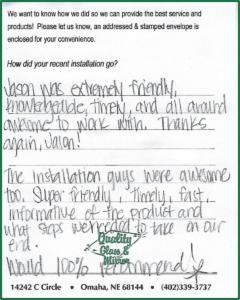 We want to know how we did so we can provide the best service and
products! Please let us know, an addressed & stamped envelope is
enclosed for your convenience.
How did your recent installation go?
Jason was extremely friendly,
knowledgeable, timely, and all around
awesome to work with. Thanks
again, Jason!
The installation guys were awesome
too. Super friendly, timely, fast,
informative of the product and
what steps we need to take on our
end.
Would 100% recommend!
Quality
Glass &
Mirror
14242 C Circle • Omaha, NE 68144 • (402)339-3737